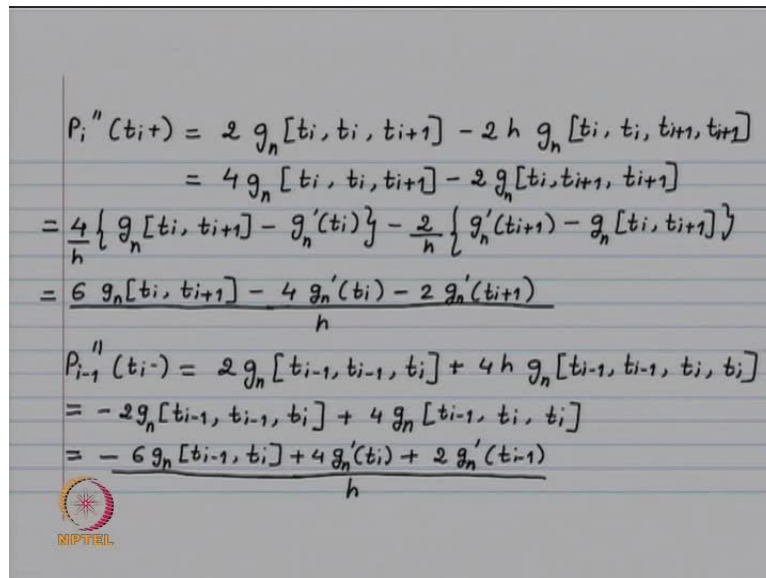 Pi"(ti+) = 2 gn[ti, ti, ti+1] - 2 h gn[ti, ti, ti+1, ti+1]
= 4 gn[ti, ti, ti+1] - 2 gn[ti, ti+1, ti+1]
= 4/h { gn[ti, ti+1] - gn'(ti) } - 2/h { gn'(ti+1) - gn[ti, ti+1] }
= 6 gn[ti, ti+1] - 4 gn'(ti) - 2 gn'(ti+1)
h
Pi-1"(ti-) = 2 gn[ti-1, ti-1, ti] + 4 h gn[ti-1, ti-1, ti, ti]
= - 2gn[ti-1, ti-1, ti] + 4 gn[ti-1, ti, ti]
= - 6 gn[ti-1, ti] + 4 gn'(ti) + 2 gn'(ti-1)
h
NPTEL